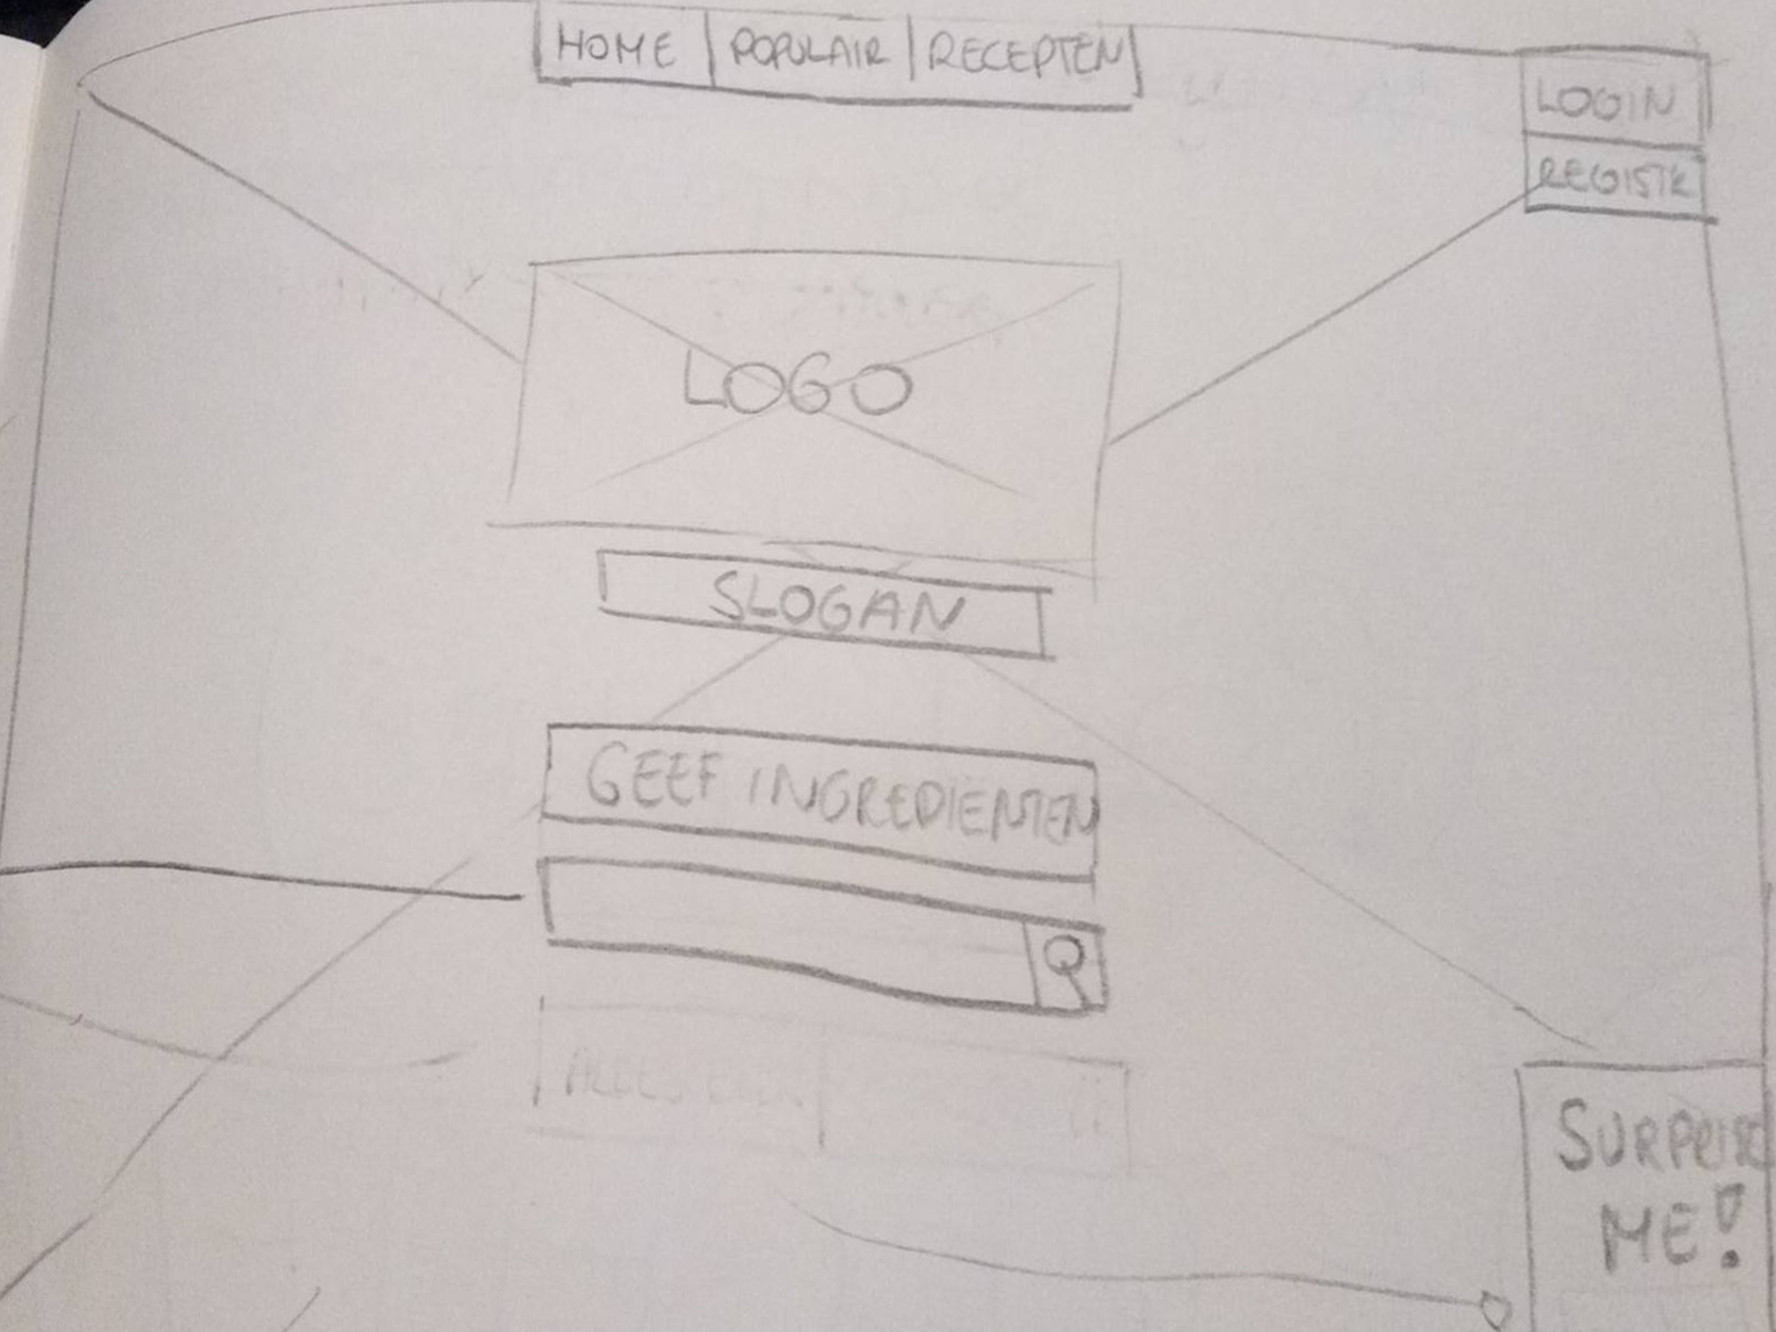 HOME POPULAIR RECEPTEN
LOGIN
REGISTR
LOGO
SLOGAN
GEEF INGREDIENTEN
ALLES
SURPRISE
ME!